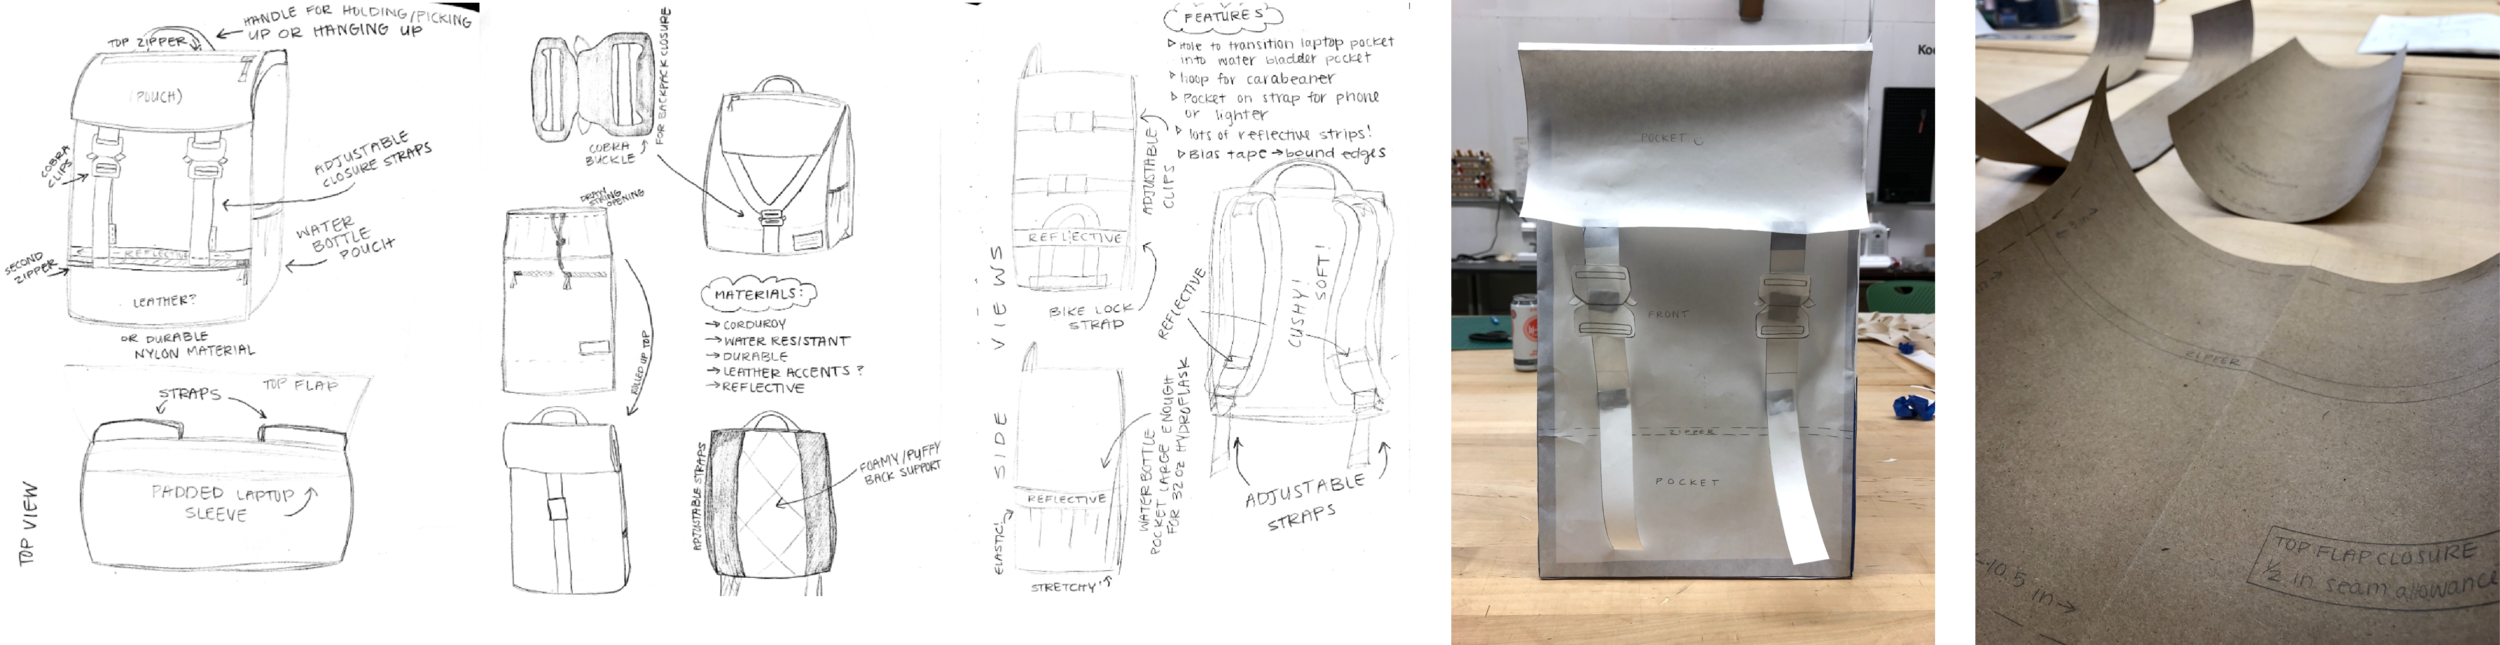 HANDLE FOR HOLDING/PICKING
UP OR HANGING UP
TOP ZIPPER
(POUCH)
COBRA
CLIPS
ADJUSTABLE
CLOSURE STRAPS
WATER
BOTTLE
POUCH
REFLECTIVE
SECOND
ZIPPER
LEATHER?
OR DURABLE
NYLON MATERIAL
TOP FLAP
STRAPS
PADDED LAPTOP
SLEEVE
TOP VIEW
FOR BACKPACK CLOSURE
COBRA
BUCKLE
DRAW
STRING
OPENING
ROLLED UP TOP
MATERIALS:
→ CORDUROY
→ WATER RESISTANT
→ DURABLE
→ LEATHER ACCENTS?
→ REFLECTIVE
ADJUSTABLE STRAPS
FOAMY/PUFFY
BACK SUPPORT
FEATURES
▷ Hole to transition laptop pocket
into water bladder pocket
▷ hoop for carabeaner
▷ Pocket on strap for phone
or lighter
▷ lots of reflective strips!
▷ Bias tape → bound edges
ADJUSTABLE
CLIPS
REFLECTIVE
BIKE LOCK
STRAP
SIDE VIEWS
REFLECTIVE
ELASTIC!
STRETCHY!
WATER BOTTLE
POCKET LARGE ENOUGH
FOR 32 OZ HYDROFLASK
REFLECTIVE
CUSHY!
SOFT!
ADJUSTABLE
STRAPS
POCKET
FRONT
ZIPPER
POCKET
Ko
ZIPPER
TOP FLAP CLOSURE
1/2 in seam allowance
10.5 in →